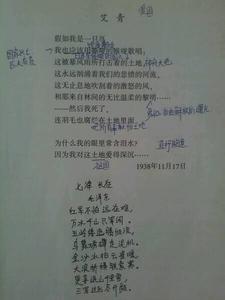 艾青
假如我是一只鸟，
我也应该用嘶哑的喉咙歌唱：
这被暴风雨所打击着的土地，
这永远汹涌着我们的悲愤的河流，
这无止息地吹刮着的激怒的风，
和那来自林间的无比温柔的黎明……
——然后我死了，
连羽毛也腐烂在土地里面。
为什么我的眼里常含泪水？
因为我对这土地爱得深沉……
1938年11月17日
七律 长征
毛泽东
红军不怕远征难，
万水千山只等闲。
五岭逶迤腾细浪，
乌蒙磅礴走泥丸。
金沙水拍云崖暖，
大渡桥横铁索寒。
更喜岷山千里雪，
三军过后尽开颜。